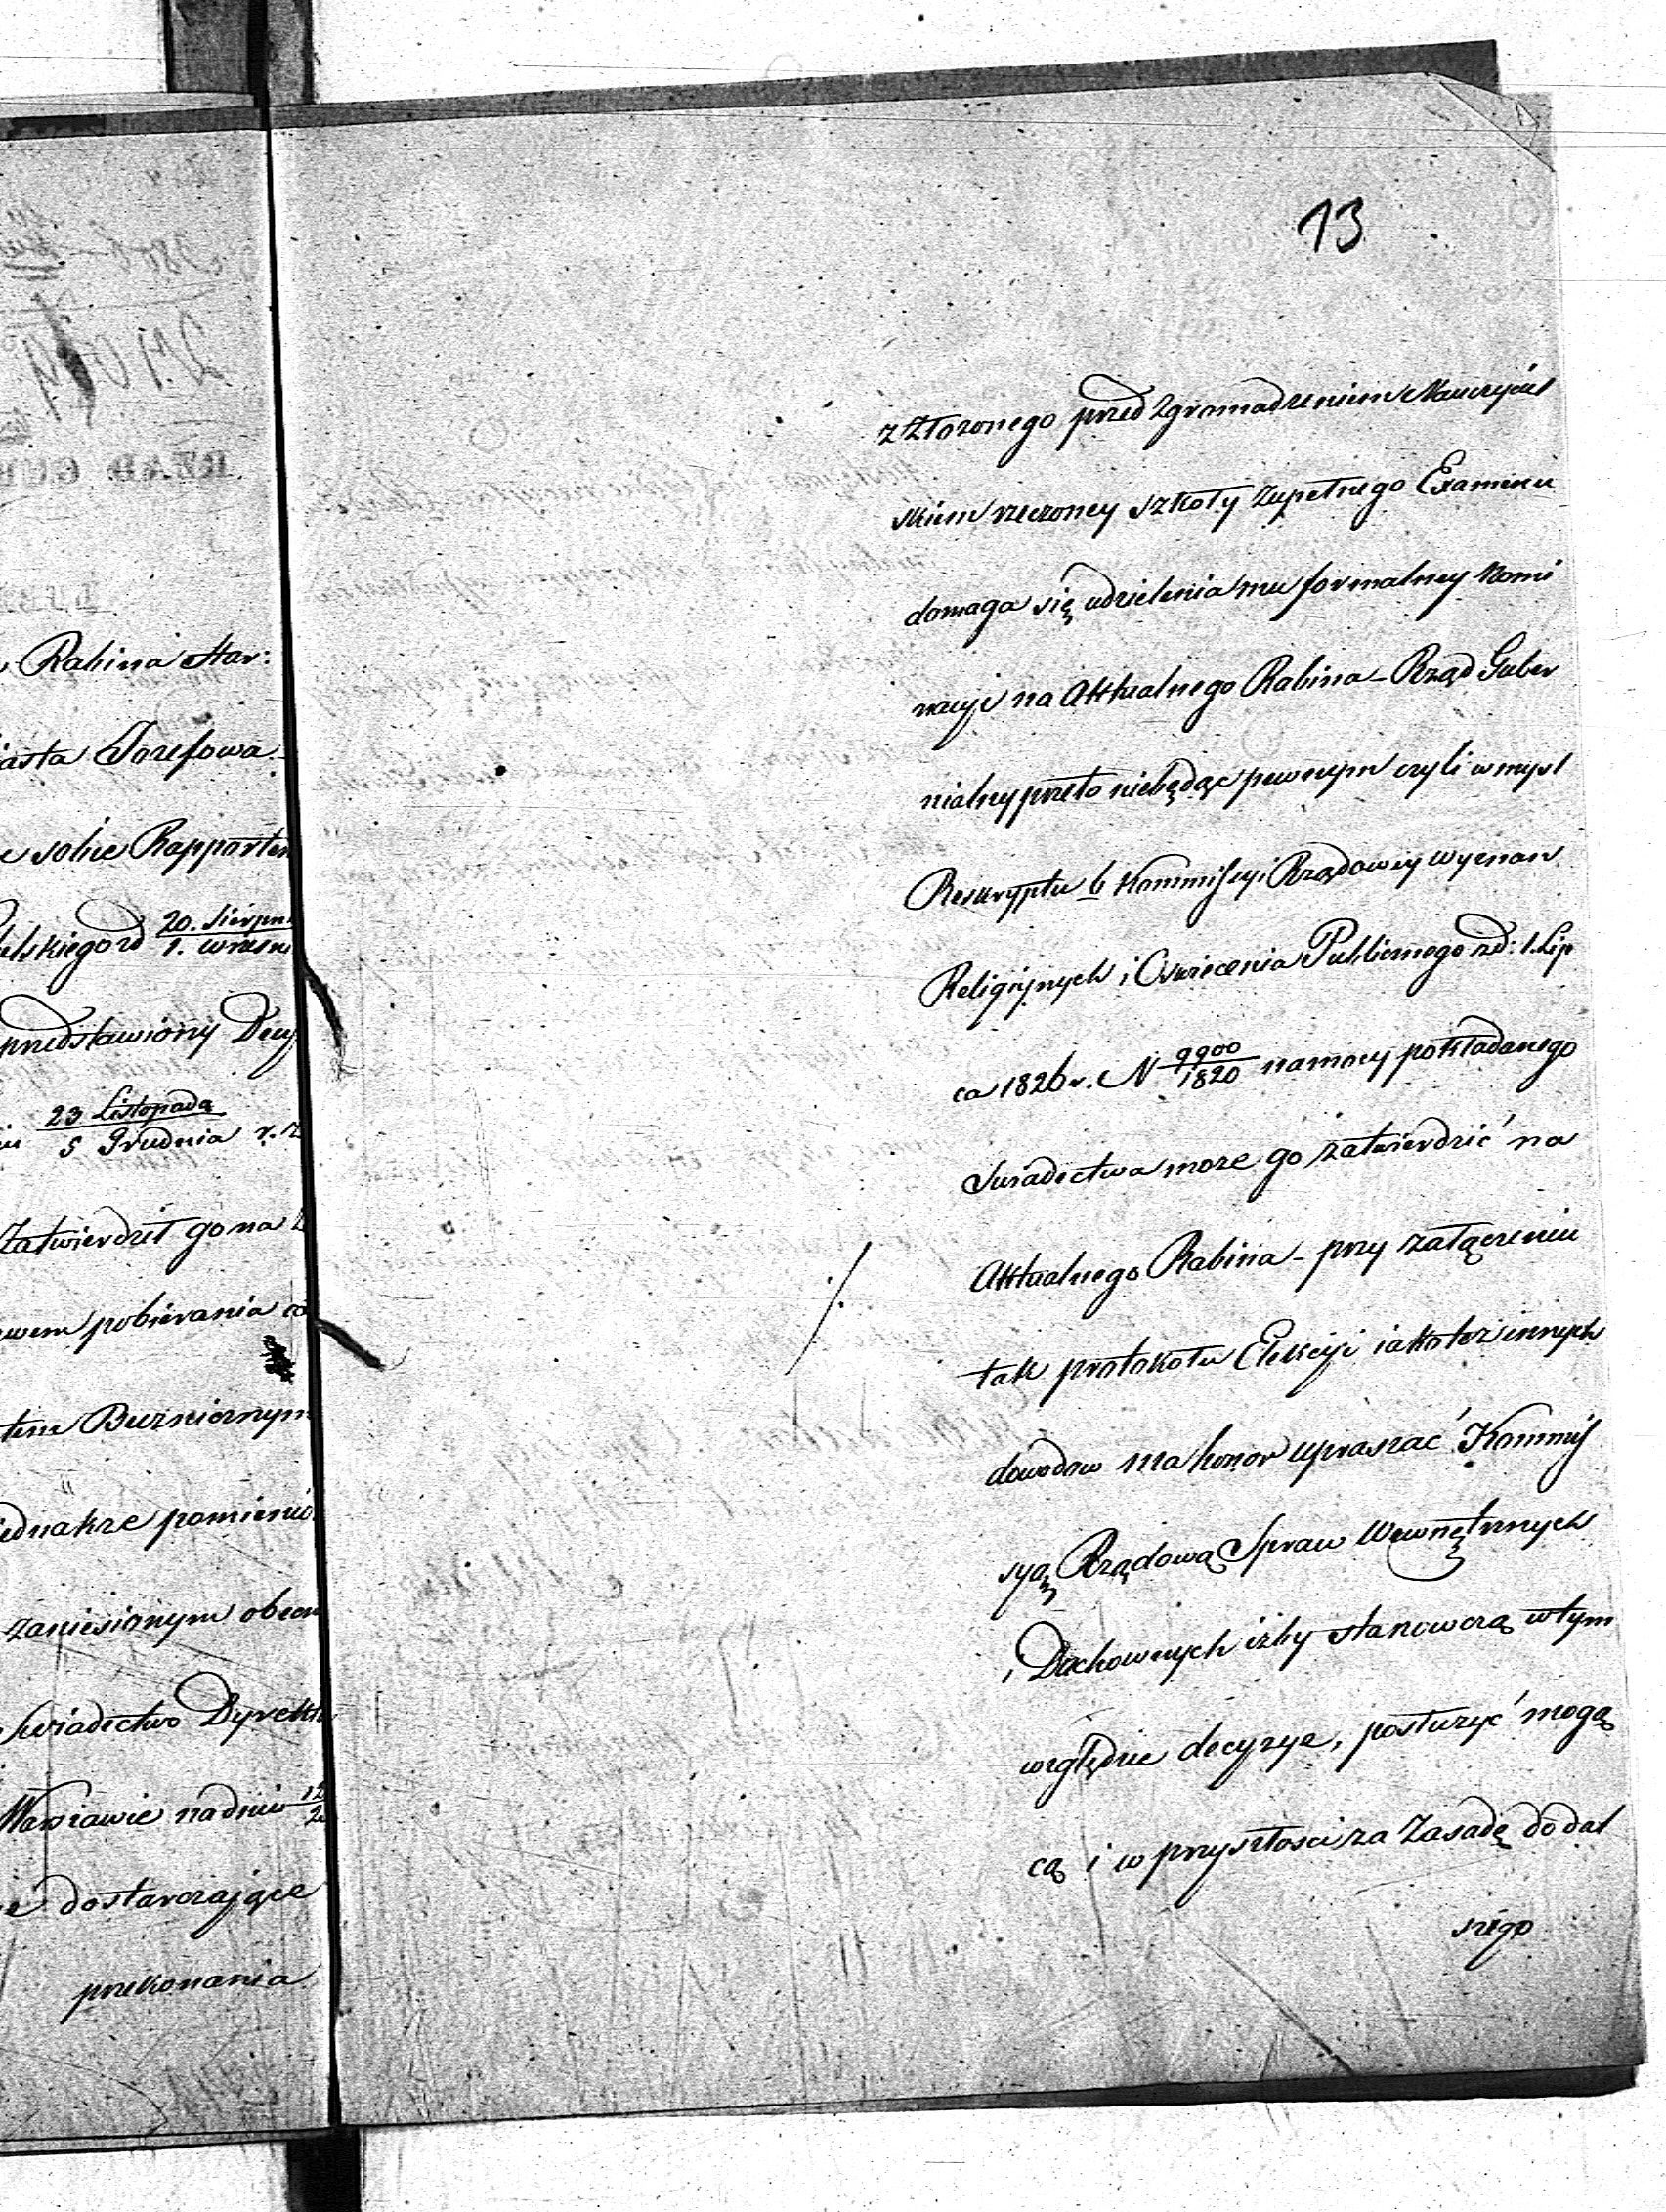 Rabina Mar:
iasta Jozefowa.
sobie Rapportem
elskiego zd 20. Sierpn / 1. Wrześn
przedstawiony Decy
23 Listopada / 5 Grudnia r. z
Zatwierdził go na
wem pobierania
tem Bużnicznym
iednakze pomienio
zaniesionym obecn
Swiadectwo Dyrekt
Warszawie na dniu 12
dostarczające
przekonania
13
z złozonego przed Zgromadzeniem Nauczyciel
skiem rzeczoney Szkoły Zupełnego Examenu
domaga się udzielenia mu formalney Nomi
nacyi na Aktualnego Rabina – Rząd Guber
nialny przeto niebędąc pewnym czyli w mysl
Reskryptu b Kommissyi Rządowey Wyznan
Religiynych i Oswiecenia Publicznego zd: 1. Lip
ca 1826 r. N 9900/1820 na mocy pokładanego
Swiadectwa moze go zatwierdzić na
Aktualnego Rabina – przy załączeniu
tak protokołu Elekcyi iakotez innych
dowodow ma honor upraszać Kommis
syą Rządową Spraw Wewnętrznych
i Duchownych iżby stanowczą w tym
względzie decyzye, posłuzyć mogą
cą i w przyszłosci za Zasadę do dal
szego